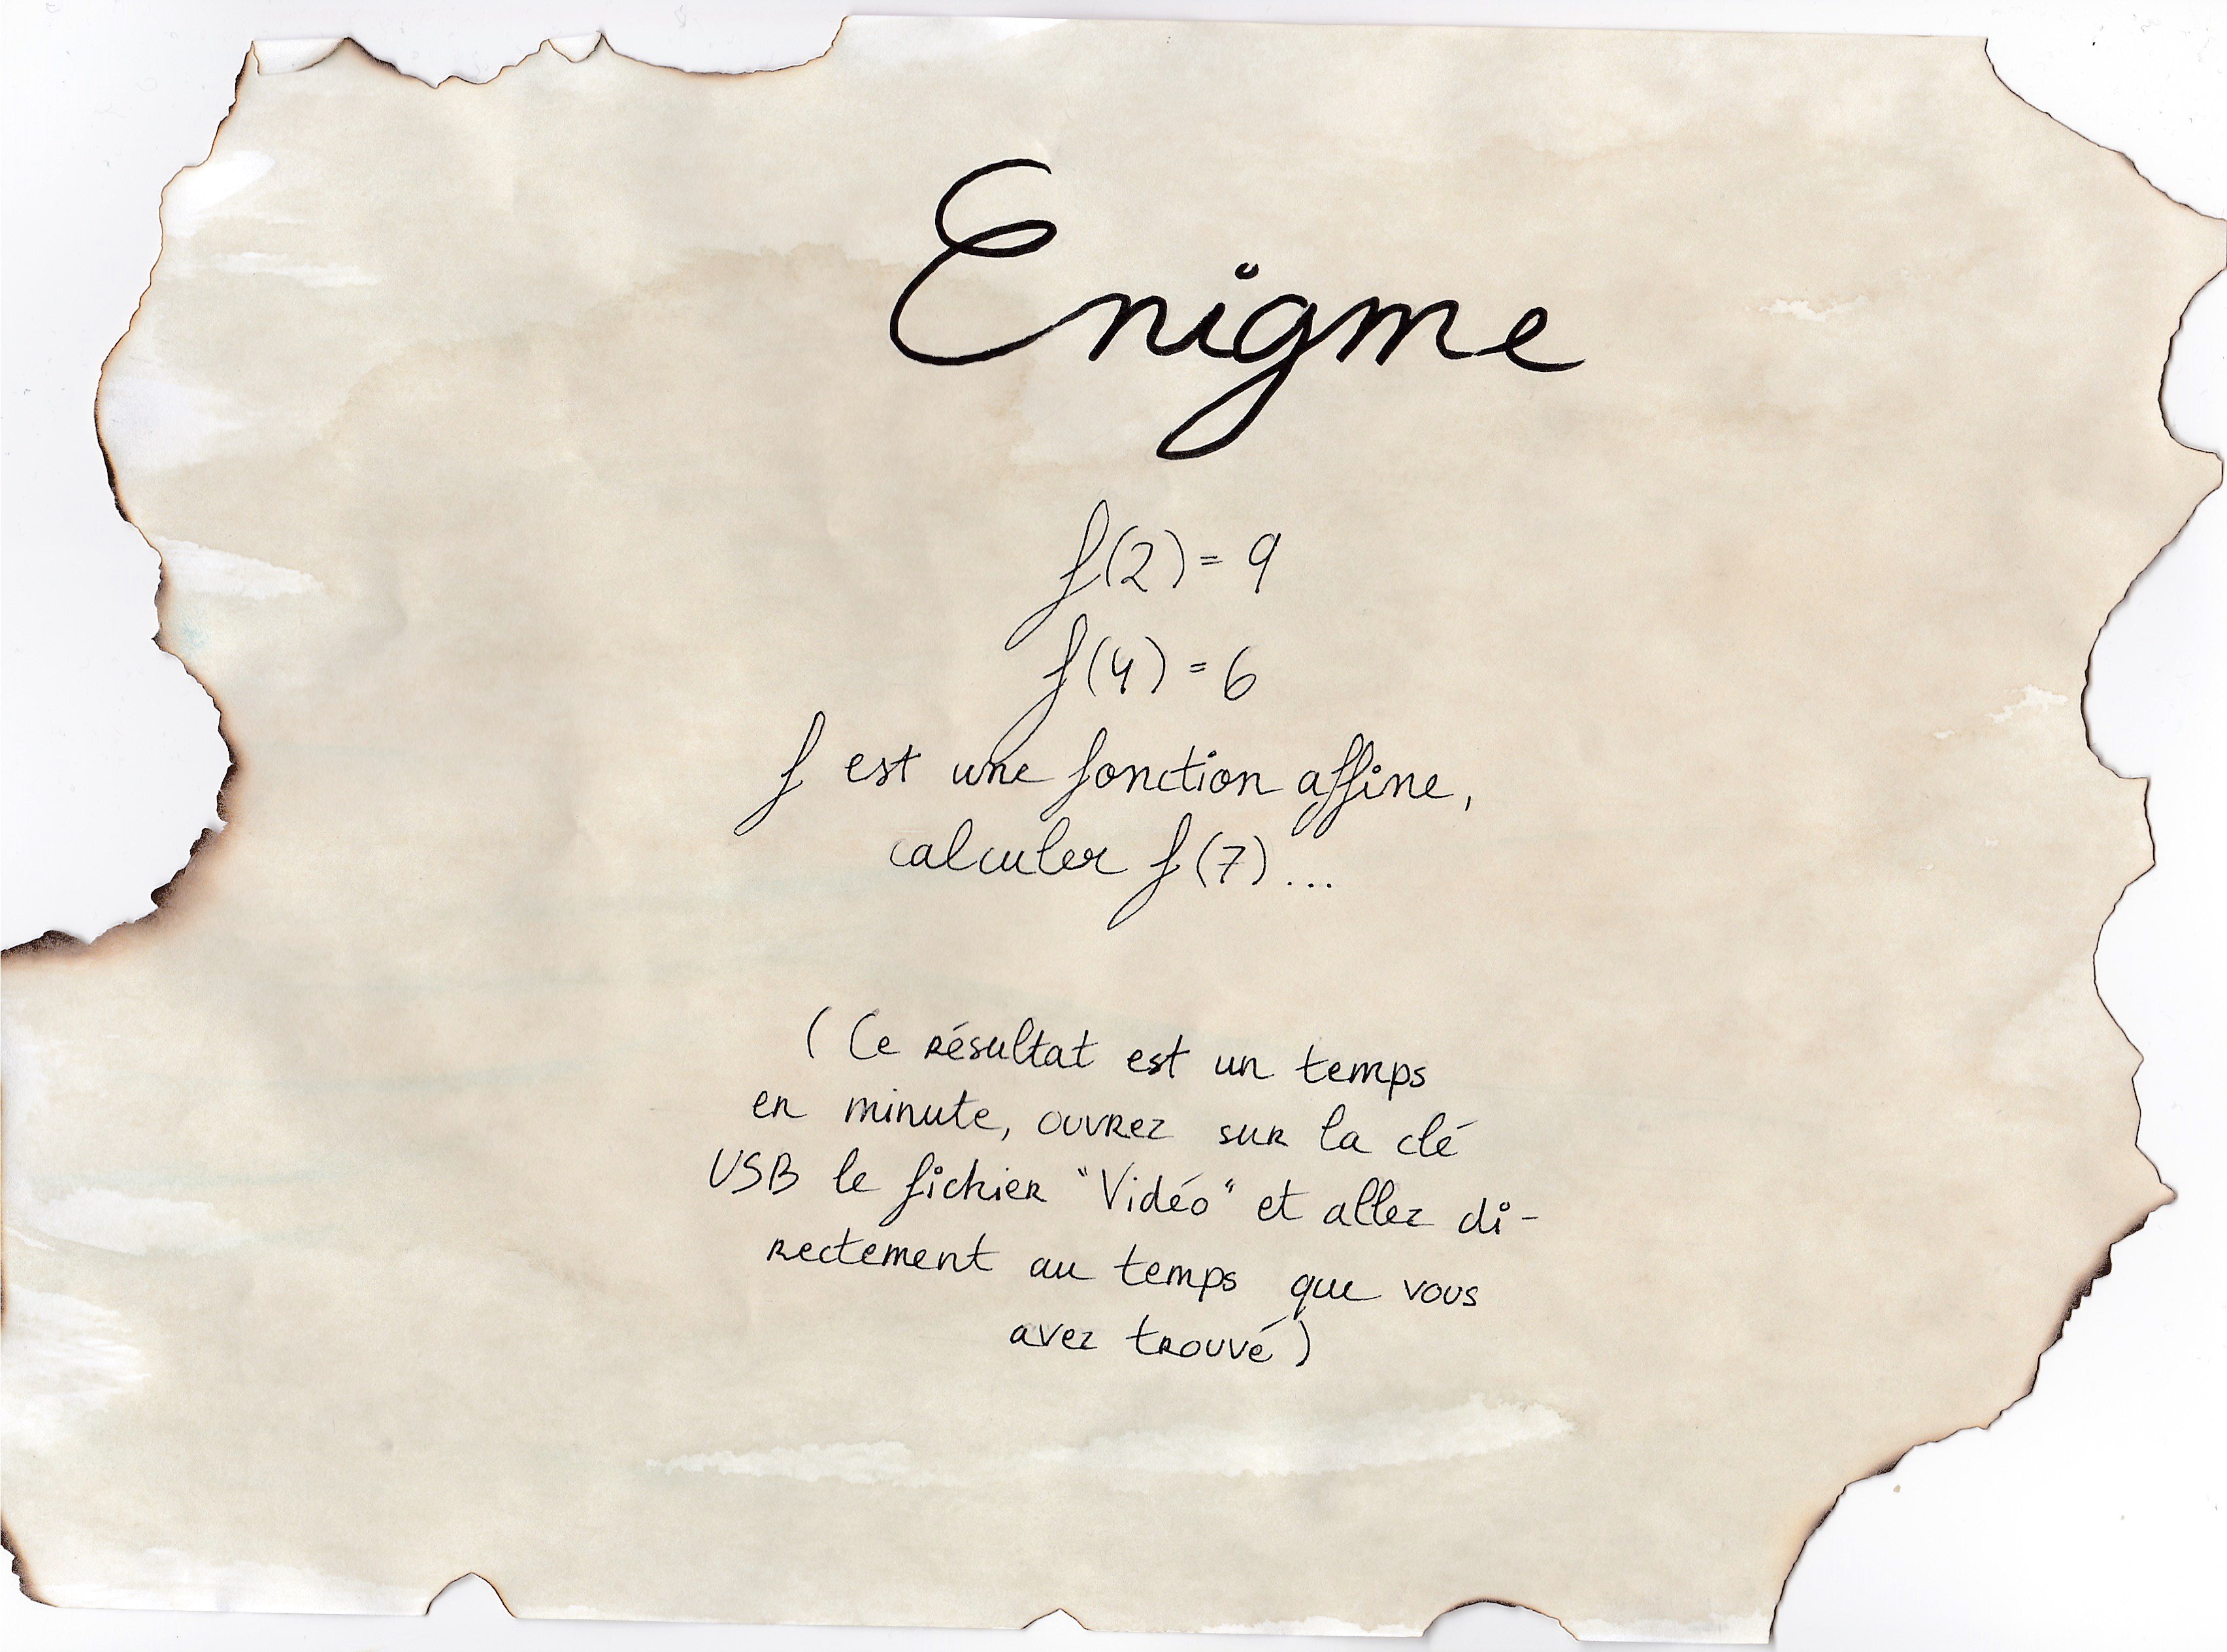 Enigme
f(2) = 9
f(4) = 6
f est une fonction affine,
calculer f(7)...
( Ce résultat est un temps
en minute, ouvrez sur la clé
USB le fichier "Vidéo" et allez di-
rectement au temps que vous
avez trouvé )